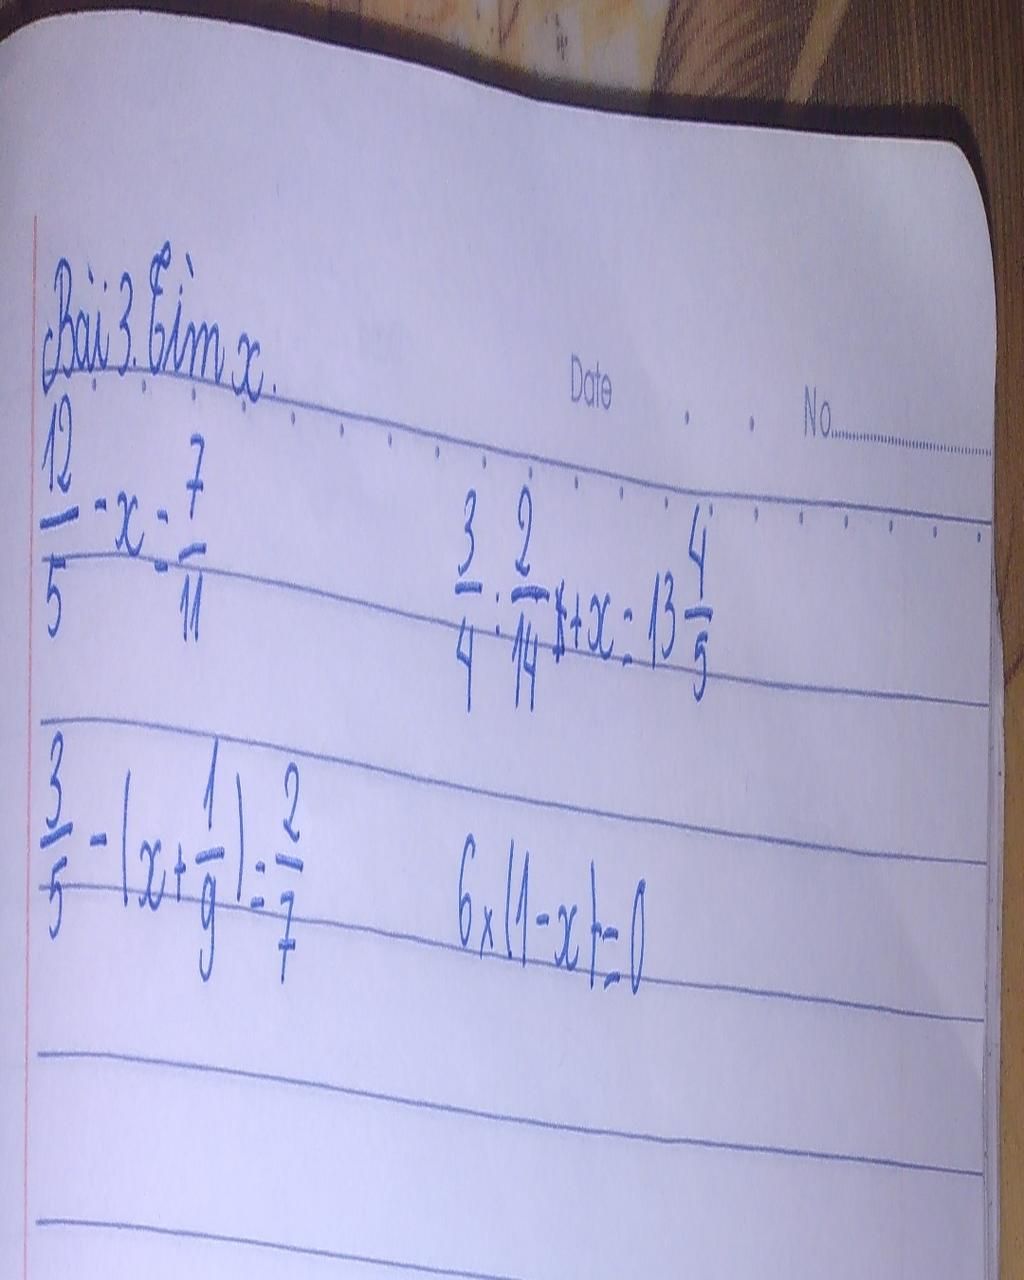 Bài 3. Tìm x.
Date . . No.
12/5 - x = 7/11    3/4 : 2/14 + x = 13 4/5
3/5 - (x + 1/9) = 2/7    6 x (1 - x) = 0